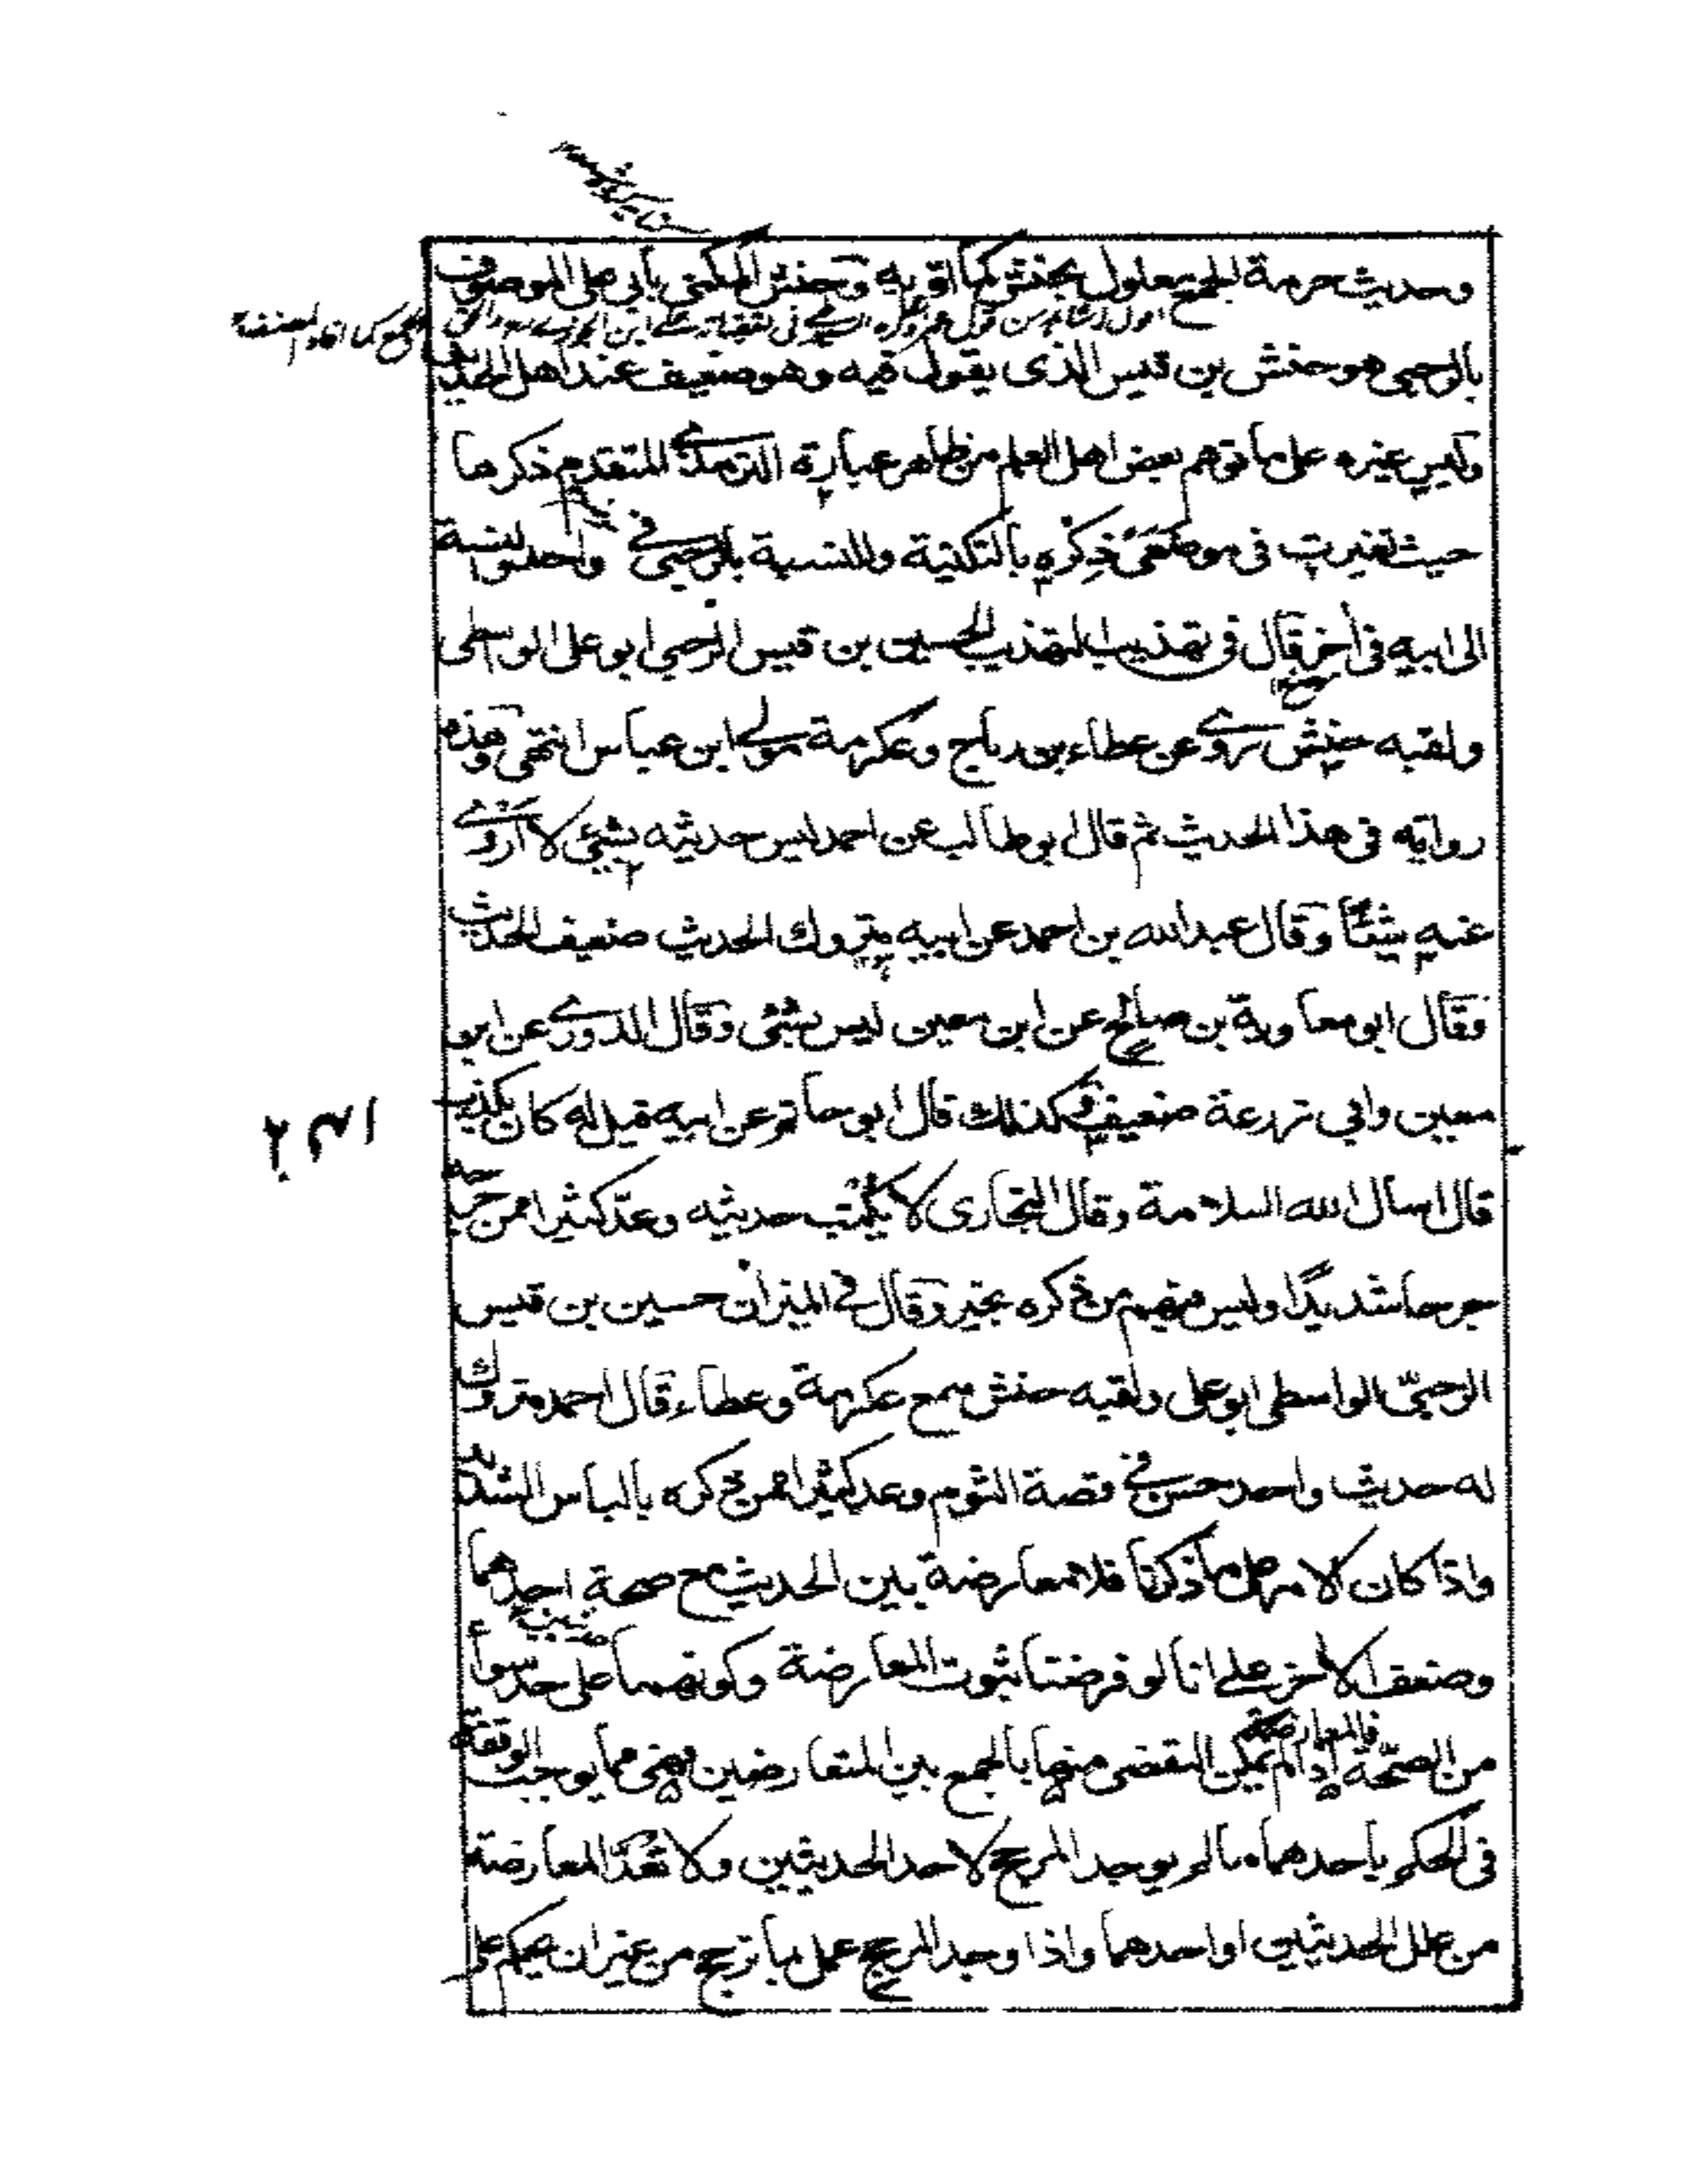 وحديث حرمة الجمع معلول بحنش كما اقربه وحنش المكنى بابى على الموصوف
بالرحبى هو حنش بن قيس الذى يقول فيه وهو ضعيف عند اهل الحديث
وليس غيره على ما توهم بعض اهل العلم من ظاهر عبارة الترمذى المتقدم ذكرها
حيث تغيرت فى موضعى ذكره بالتكنية والنسبة بالرحبى فى واحد والنسبة
الى ابيه فى أخر قال فى تهذيب التهذيب الحسين بن قيس الرحبى ابو على الواسطى
ولقبه حنش روى عن عطاء بن رباح وعكرمة مولى ابن عباس انتهى وهذه
روايته فى هذا الحديث ثم قال ابو طالب عن احمد ليس حديثه بشئ لا أروى
عنه شيئًا وقال عبد الله بن احمد عن ابيه متروك الحديث ضعيف الحديث
وقال ابو معاوية بن صالح عن ابن معين ليس بشئ وقال الدورى عن ابن
معين وابي زرعة ضعيف وكذلك قال ابو حاتم عن ابيه قيل له كان يكذب
قال اسال الله السلامة وقال البخارى لا يكتب حديثه وعدّ كثيرا ممن جرحه
جرحا شديدًا وليس منهم من ذكره بخير وقال فى الميزان حسين بن قيس
الرحبىّ الواسطى ابو على ولقبه حنش سمع عكرمة وعطاء قال احمد متروك
له حديث واحد حسن فى قصة الشوم وعد كثيرا ممن ذكره بالباس الشديد
واذا كان الامر على ما ذكرنا فلا معارضة بين الحديث مع صحة احدهما
وضعف الاخر على انا لو فرضنا ثبوت المعارضة وكونهما على حد سواء
من الصحّة فالمعارضة اذا لم يمكن التفصى منها بالجمع بين المتعارضين فهى مما يوجب الوقفة
فى الحكم باحدهما ما لم يوجد المرجح لاحد الحديثين ولا تُعَدّ المعارضة
من علل الحديثين او احدهما واذا وجد المرجح عمل بما ترجح من غير ان يحكم على